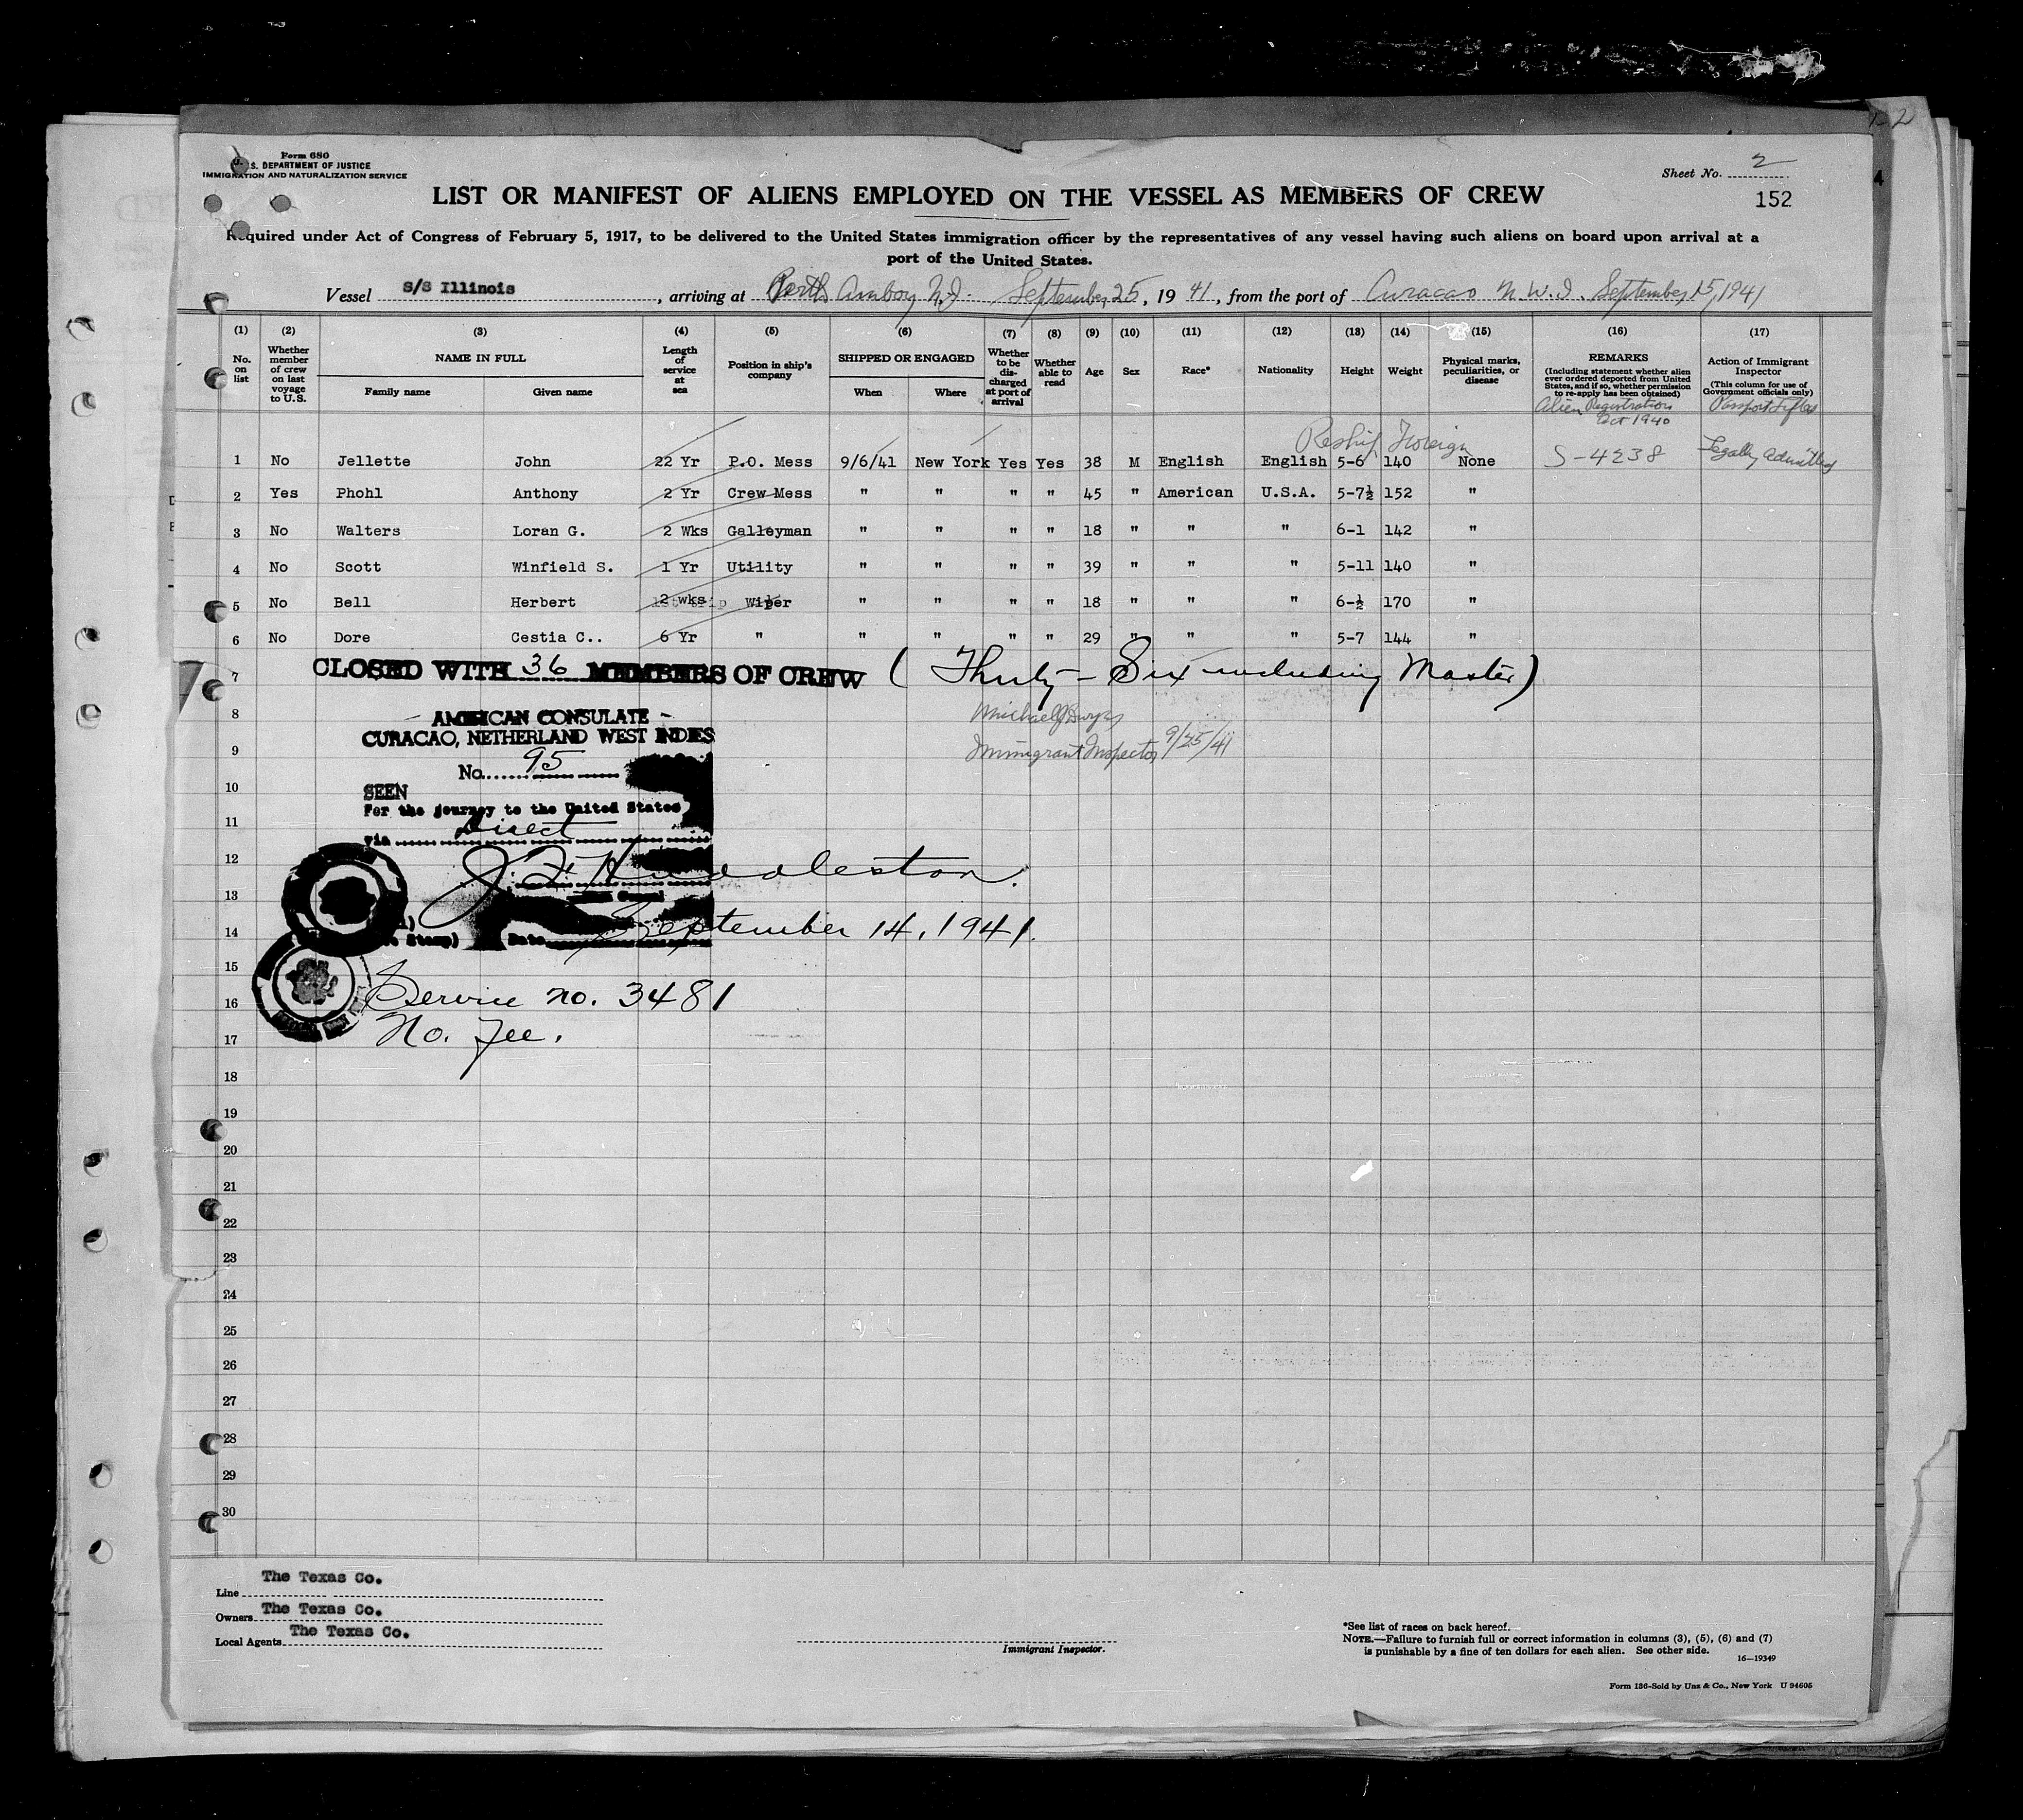 Form 680
U. S. DEPARTMENT OF JUSTICE
IMMIGRATION AND NATURALIZATION SERVICE
Sheet No. 2
152
LIST OR MANIFEST OF ALIENS EMPLOYED ON THE VESSEL AS MEMBERS OF CREW
Required under Act of Congress of February 5, 1917, to be delivered to the United States immigration officer by the representatives of any vessel having such aliens on board upon arrival at a
port of the United States.
Vessel S/S Illinois, arriving at Perth Amboy N.J. September 25, 19 41, from the port of Curacao N.W.I. September 15, 1941
(1) (2) (3) (4) (5) (6) (7) (8) (9) (10) (11) (12) (13) (14) (15) (16) (17)
No. on list
Whether member of crew on last voyage to U.S.
NAME IN FULL
Family name Given name
Length of service at sea
Position in ship's company
SHIPPED OR ENGAGED
When Where
Whether to be discharged at port of arrival
Whether able to read
Age
Sex
Race*
Nationality
Height
Weight
Physical marks, peculiarities, or disease
REMARKS
(Including statement whether alien ever ordered deported from United States, and if so, whether permission to re-apply has been obtained)
Alien Registration
Act 1940
Action of Immigrant Inspector
(This column for use of Government officials only)
Reship Foreign
1 No Jellette John 22 Yr P.O. Mess 9/6/41 New York Yes Yes 38 M English English 5-6 140 None S-4238 Legally Admitted
2 Yes Phohl Anthony 2 Yr Crew Mess " " " " 45 " American U.S.A. 5-7½ 152 "
3 No Walters Loran G. 2 Wks Galleyman " " " " 18 " " " 6-1 142 "
4 No Scott Winfield S. 1 Yr Utility " " " " 39 " " " 5-11 140 "
5 No Bell Herbert 2 wks Wiper " " " " 18 " " " 6-½ 170 "
6 No Dore Cestia C.. 6 Yr " " " " " 29 " " " 5-7 144 "
7 CLOSED WITH 36 MEMBERS OF CREW (Thirty-Six including Master)
8
AMERICAN CONSULATE
CURACAO, NETHERLAND WEST INDIES
9 Immigrant Inspector 9/25/41
No. 95
10
SEEN
For the journey to the United States
11
via Direct
12
J. F. Huddleston.
13
14
Stamp) Date September 14, 1941.
15
16 Service no. 3481
17 No. Fee.
18
19
20
21
22
23
24
25
26
27
28
29
30
Line The Texas Co.
Owners The Texas Co.
Local Agents The Texas Co.
Immigrant Inspector.
*See list of races on back hereof.
NOTE.—Failure to furnish full or correct information in columns (3), (5), (6) and (7)
is punishable by a fine of ten dollars for each alien. See other side.
16—19349
Form 136-Sold by Unz & Co., New York U 94605